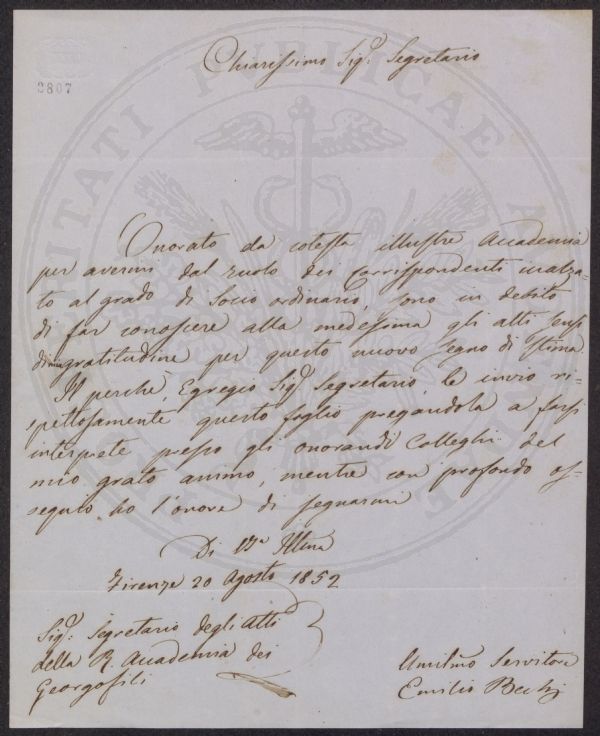 Chiarissimo Sigr. Segretario
2807
Onorato da cotesta illustre Accademia
per avermi dal ruolo dei Corrispondenti inalza-
to al grado di Socio ordinario, sono in debito
di far conoscere alla medesima gli atti sensi
di mia gratitudine per questo nuovo segno di stima.
Il perchè, Egregio Sigr. Segretario, le invio ri-
spettosamente questo foglio pregandola a farsi
interprete presso gli onorandi Colleghi del
mio grato animo, mentre con profondo os-
sequio ho l'onore di segnarmi
Di V.a Ill.ma
Firenze 20 Agosto 1852
Sigr. Segretario degli Atti
della R. Accademia dei
Georgofili
Umilmo Servitore
Emilio Bechi